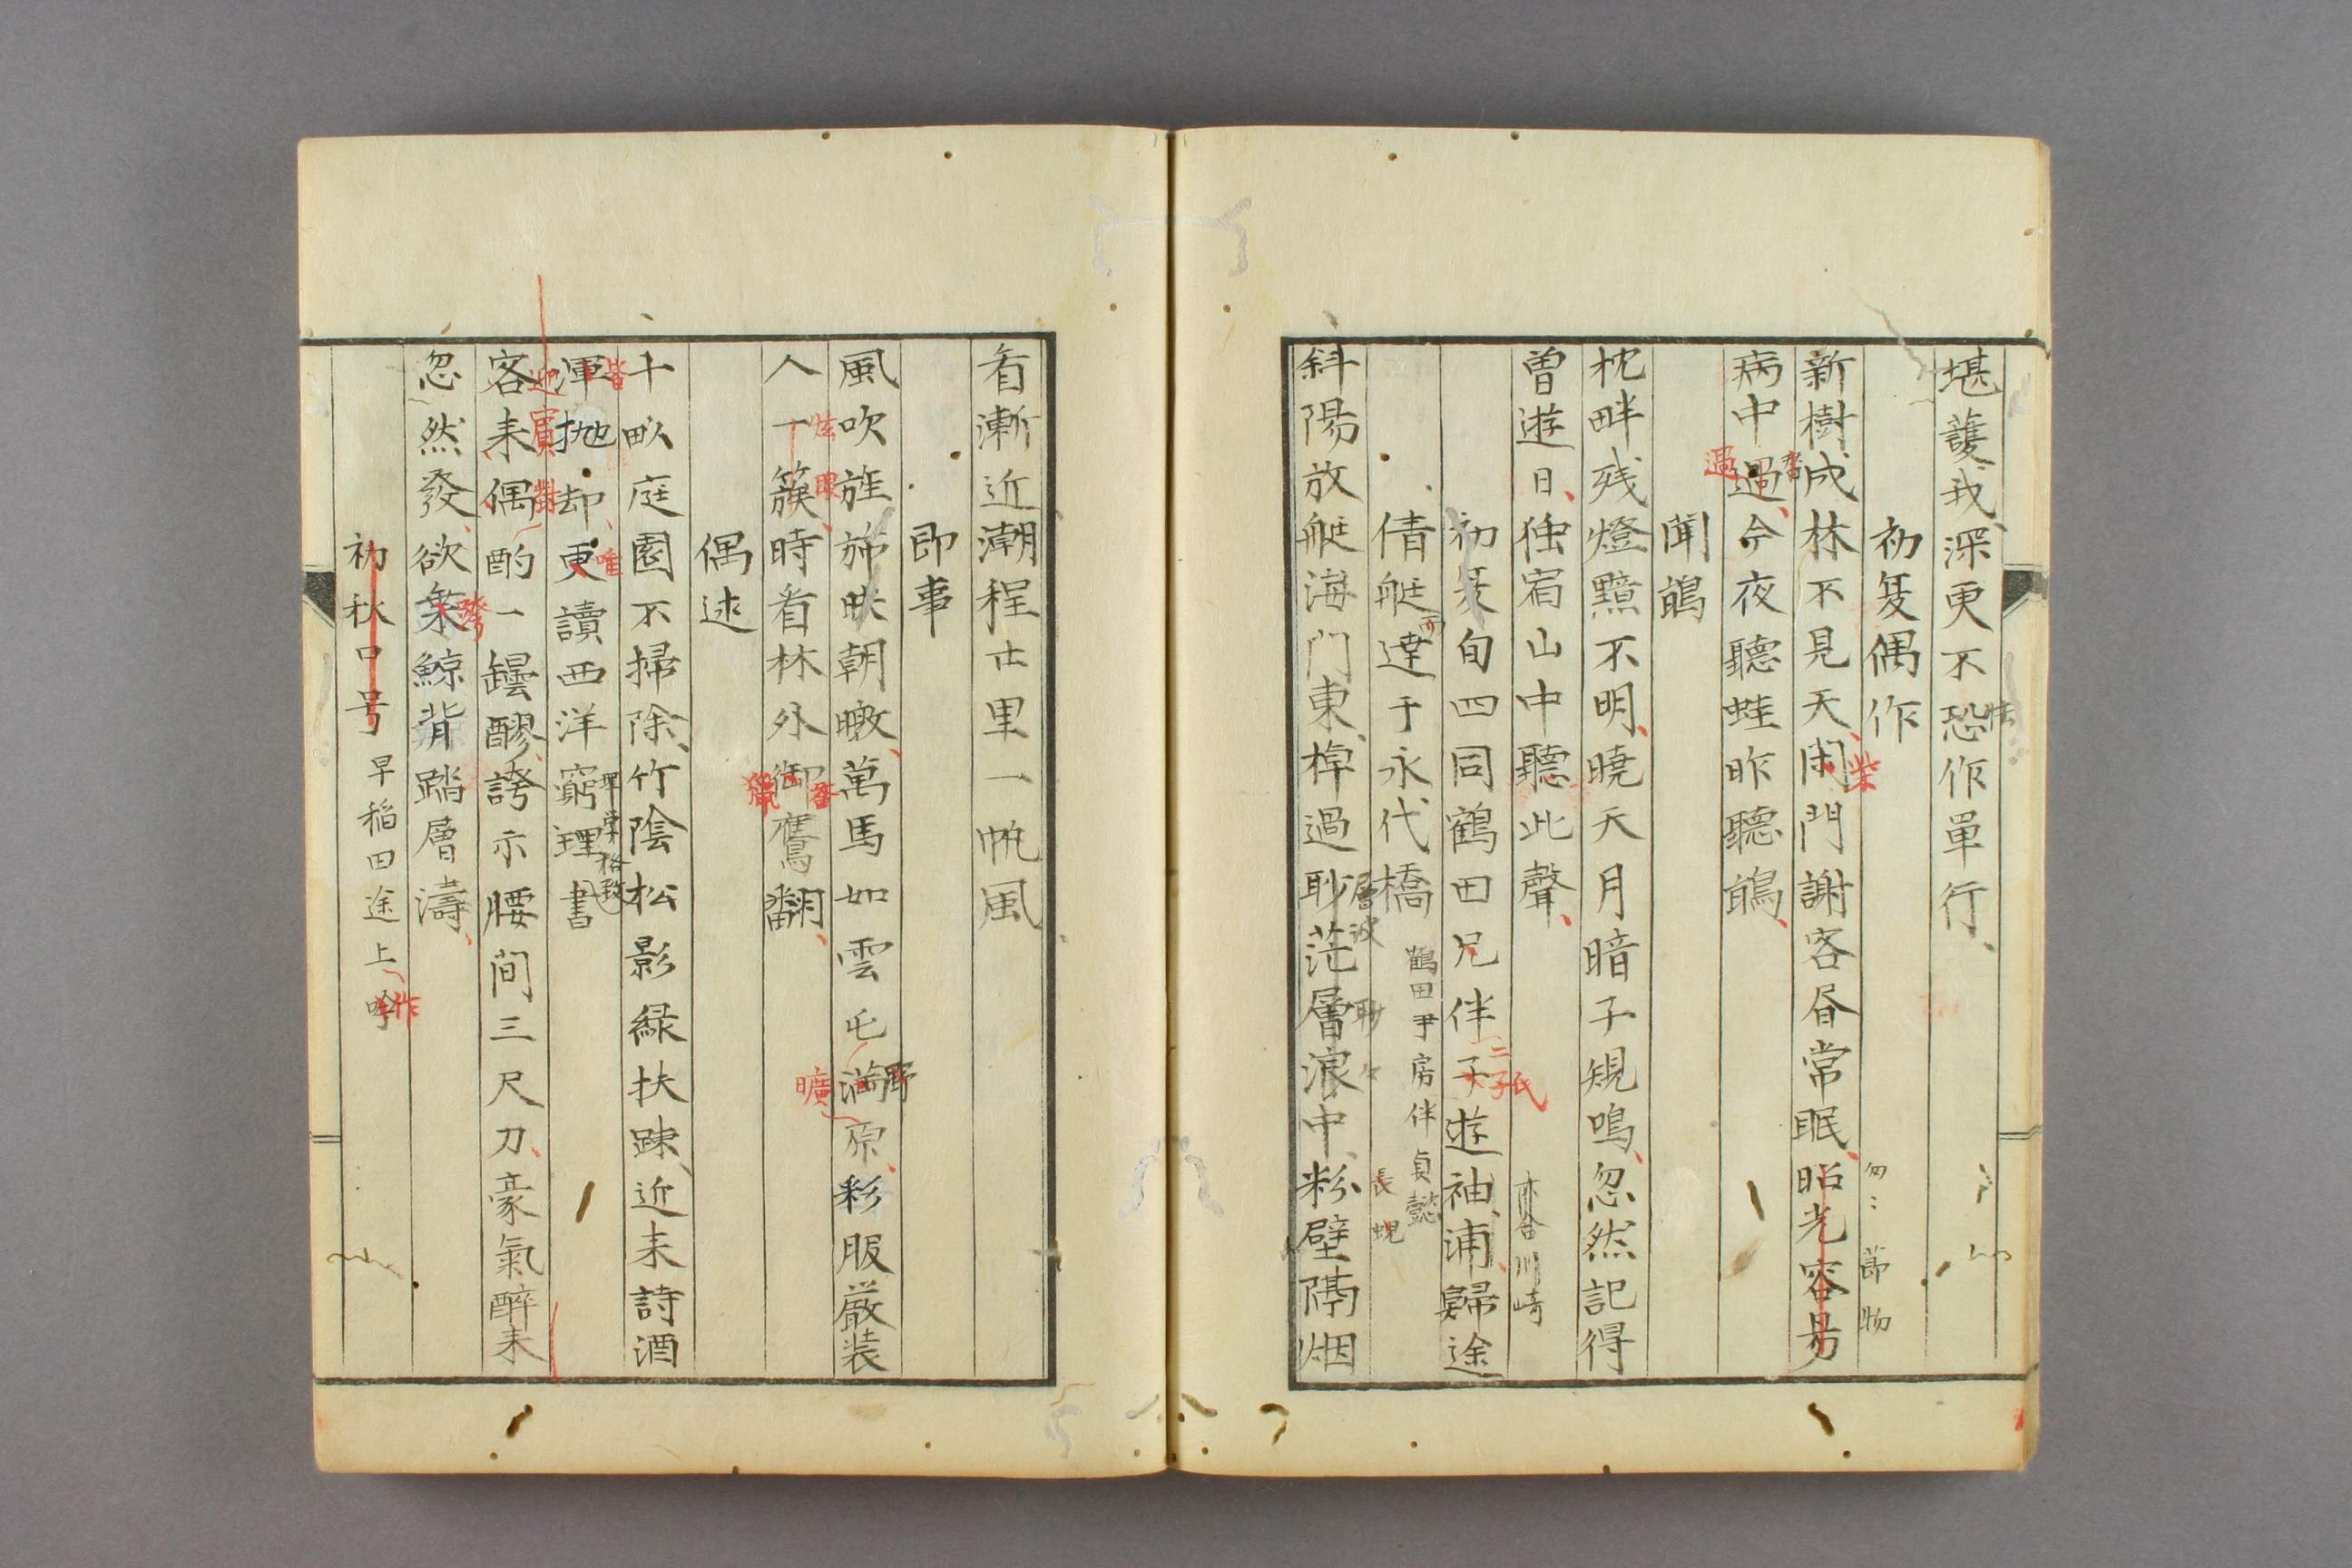 堪護我深更不恐作單行
怯
初夏偶作
新樹成林不見天閑門謝客昼常眠昭光容易
柴
匆〻節物
病中過今夜聽蛙昨聽鵑
過
聞鵑
枕畔残燈黯不明曉天月暗子規鳴忽然記得
曽遊日独宿山中聽此聲
初夏旬四同鶴田兄伴子遊袖浦歸途
二子氏
川崎
倩艇達于永代橋
而
鶴田尹房伴貞懿
斜陽放艇海門東棹過眇茫層浪中粉壁隔烟
層波眇々
長
看漸近潮程廿里一帆風
即事
風吹旌旆映朝暾萬馬如雲屯満原彩服厳装
野
曠
人一簇時看林外御鷹翻
眩眼
偶述
十畝庭園不掃除竹陰松影緑扶踈近来詩酒
渾抛却更讀西洋窮理書
皆
唯
格致
客来偶酌一罎醪誇示腰间三尺刀豪氣醉来
迎賓
忽然發欲乗鯨背踏層濤
跨
初秋口号 早稲田途上吟
作